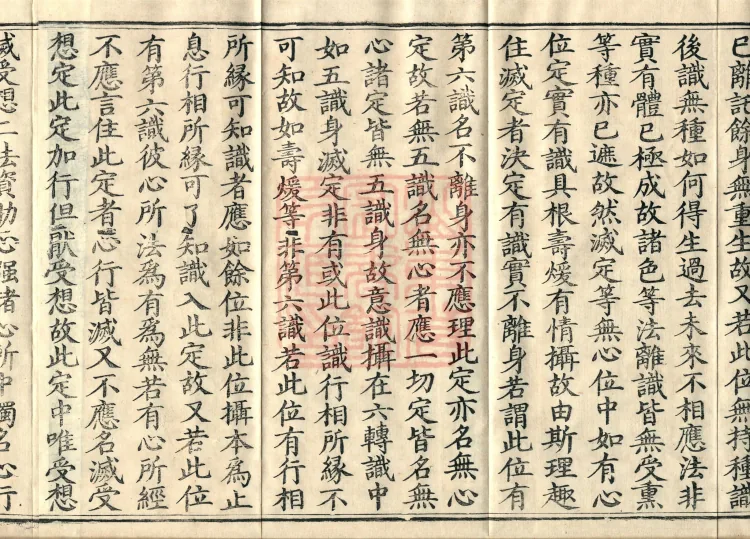 已離諸餘身無重生故又若此位無持種識
後識無種如何得生過去未來不相應法非
實有體已極成故諸色等法離識皆無受熏
等種亦已遮故然滅定等無心位中如有心
位定實有識具根壽煖有情攝故由斯理趣
住滅定者決定有識實不離身若謂此位有
第六識名不離身亦不應理此定亦名無心
定故若無五識名無心者應一切定皆名無
心諸定皆無五識身故意識攝在六轉識中
如五識身滅定非有或此位識行相所緣不
可知故如壽煖等非第六識若此位有行相
所緣可知識者應如餘位非此位攝本為止
息行相所緣可了知識入此定故又若此位
有第六識彼心所法為有為無若有心所經
不應言住此定者心行皆滅又不應名滅受
想定此定加行但猒受想故此定中唯受想
滅受想二法資助心强諸心所中獨名心行